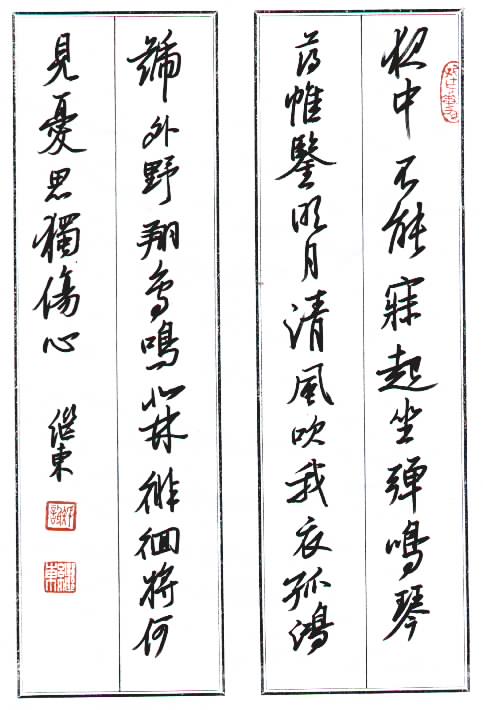 夜中不能寐起坐彈鳴琴
薄帷鑒明月清風吹我衣孤鴻
號外野翔鳥鳴北林徘徊將何
見憂思獨傷心
继東